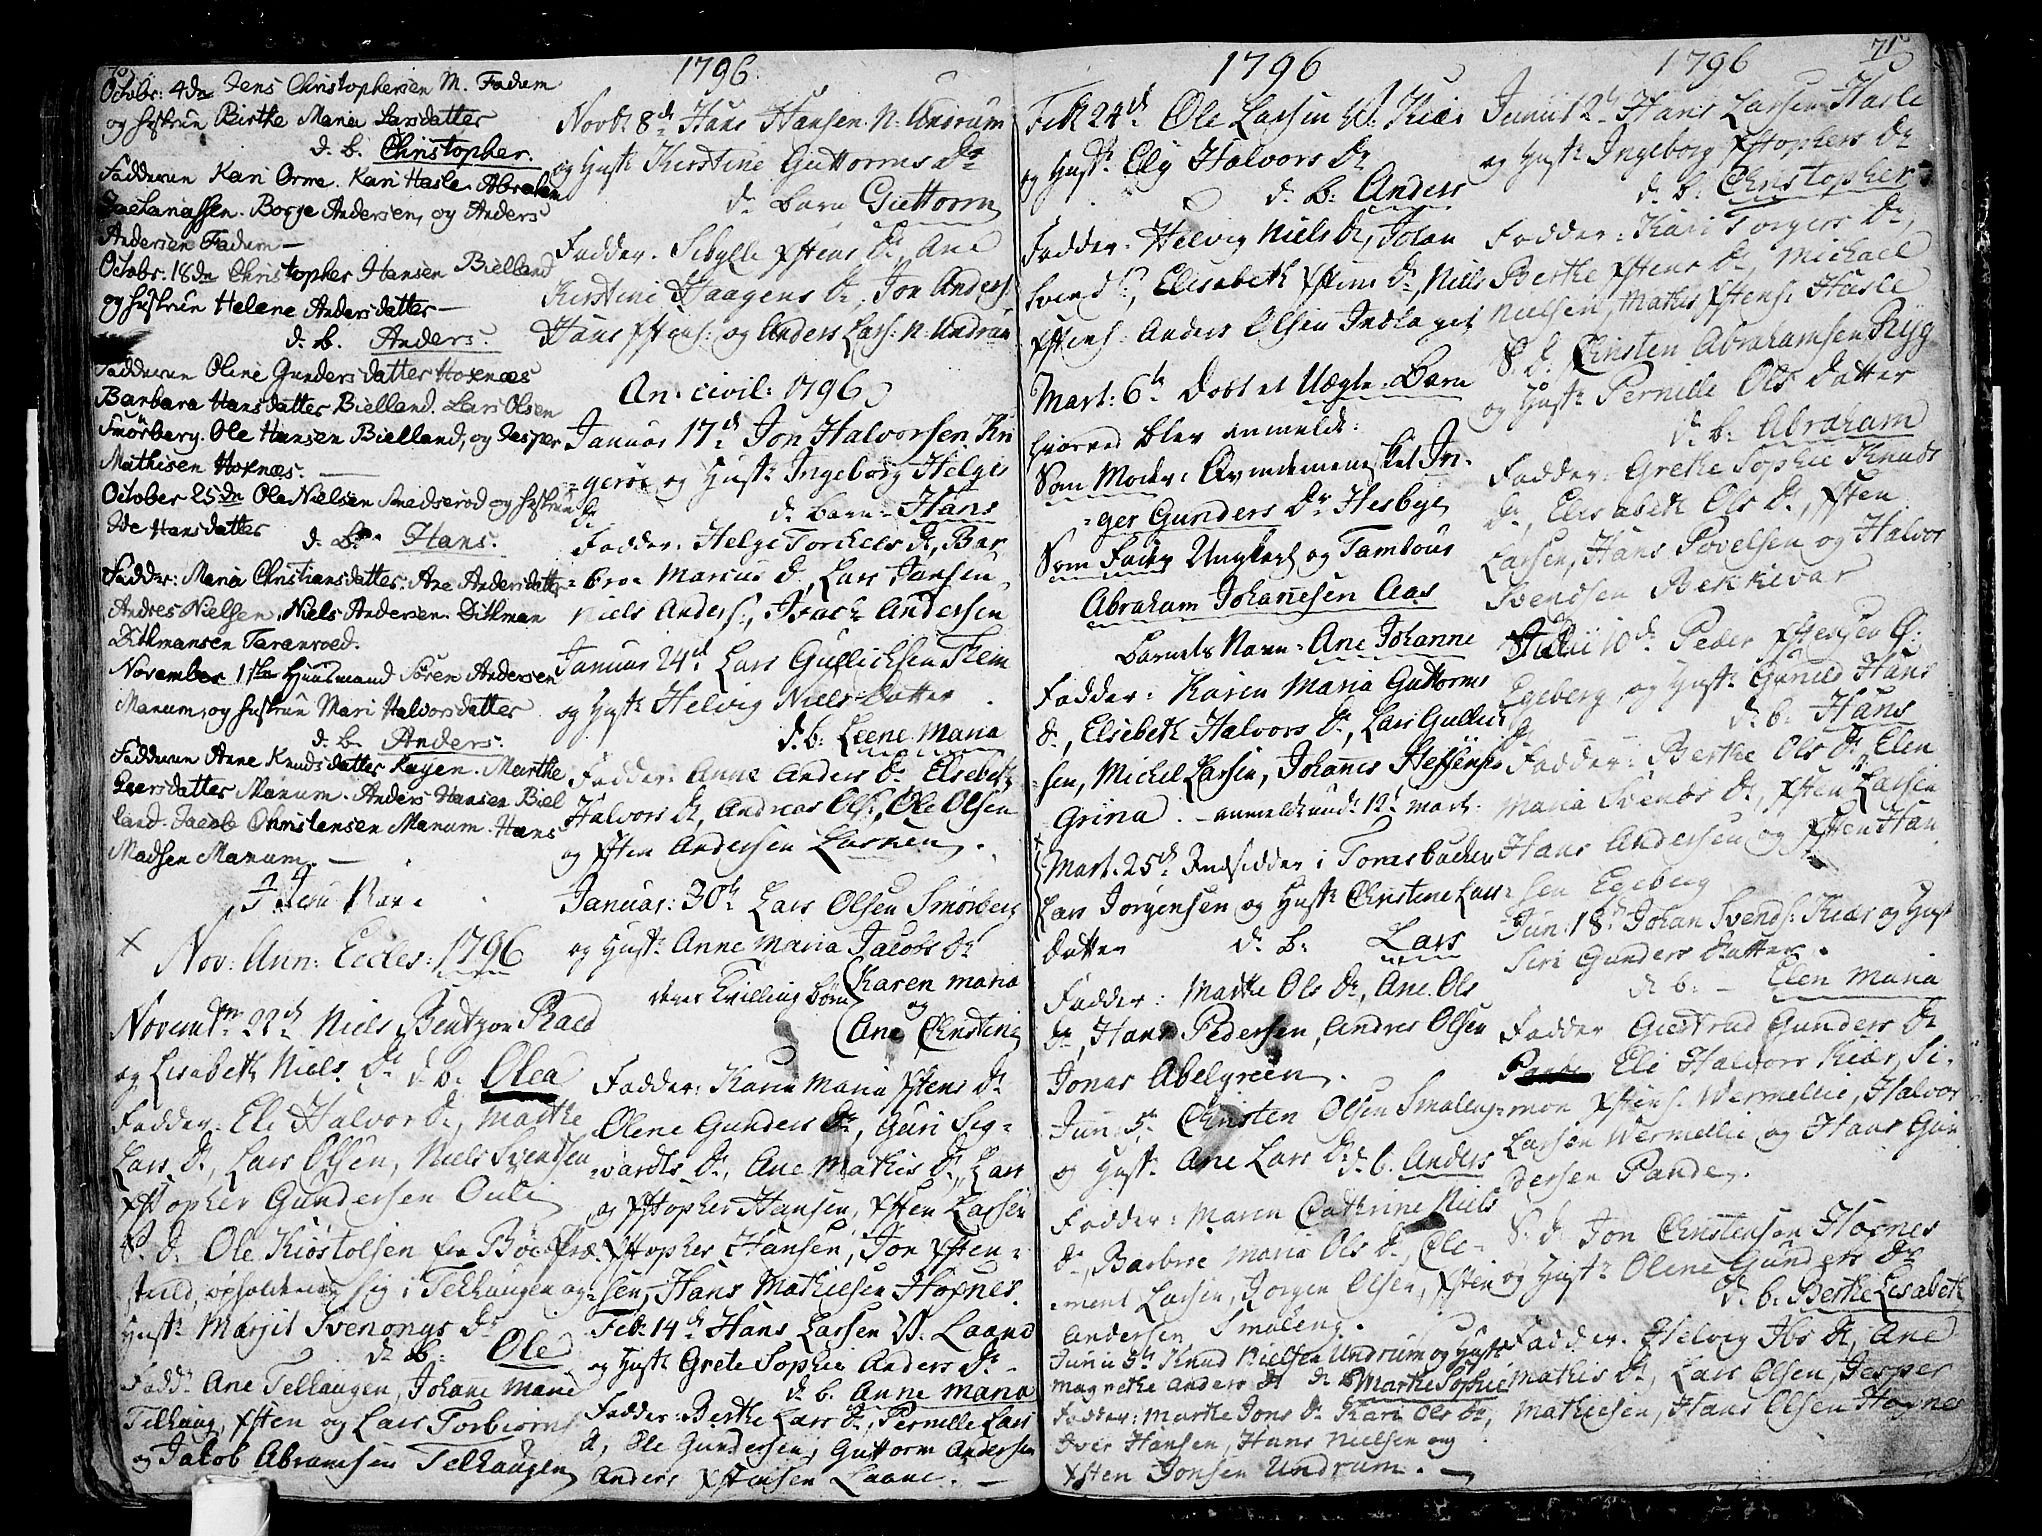 70
Octobr: 4de Jens Christophersen M. Fadum
og hustrue Birthe Maria Larsdatter
d. b. Christopher.
Fadderen Kari Orne. Kari Hasle. Abraham
Zachariassen. Borge Andersen, og Anders
Andersen Fadum —
Octobr: 18de Christopher Hansen Bielland
og hustrue Helene Andersdatter —
d. b. Anders.
Fadderen Oline Gundersdatter Hoxnæs
Barbara Hansdatter Bielland. Lars Olsen
Smörberg. Ole Hansen Bielland, og Jesper
Mathisen Hoxnæs. —
October 25de Ole Nielsen Smedsröd og hustrue
Ide Hansdatter d. B. Hans.
Fadder: Maria Christiansdatter. Ane Andersdatter
Andres Nielsen. Niels Andersen. Ditlman
Ditlmansen Taranroed.
November 1ste Huusmand Sören Andersen
Manum, og hustrue Mari Halvorsdatter
d. b. Anders.
Fadderen Anne Knudsdatter Røyen. Marthe
Geersdatter Manum. Anders Hansen Biel
land. Jacob Christensen Manum. Hans
Madsen Manum. —
Nov: Ann: Eccles: 1796
Novem. 22d Niels Bentzon Raed
og Lisabeth Niels Dr d. b. Olea
Fadder: Eli Halvor Dr, Marthe
Lars Dr, Lars Olsen, Niels Svendsen
Xstopher Gundersen Ouli
S. D. Ole Kiøstolsen fra Bøe Præ
stuld, opholdende sig i Telhaugen og
Hust. Margit Svenongs Dr
d. B. Ole
Fadd. Ane Telhaugen, Johane Marie
Telhaug, Xsten og Lars Torbiørns
og Jakob Abramsen Telhaugen
1796
Novbr 8d Hans Hansen N. Undrum
og Hust. Kirstine Guttorms Dr
d. Barn Guttorm
Fadder. Sibylle Xstens Dr, Ane
Kirstine Haagens Dr, Jon Anders.
Hans Xstens: og Anders Lars. N. Undrum
An: civil: 1796
Januar 17d Jon Halvorsen Rin
gerøe og Hust. Ingeborg Helges
Dr d. Barn. Hans
Fadder: Helge Torchels Dr, Bar
bro Marius Dr, Lars Jansen
Niels Anders., Isach Andersen
Januar 24d Lars Gullichsen Flem
og Hust. Helvig Niels Datter
d. b. Leene Maria
Fadder: Anne Anders Dr Elsebeth
Halvors Dr, Andreas Ols., Ole Olsen
og Xsten Andersen Lasken.
Januar: 30d Lars Olsen Smörberg
og Hust. Anne Maria Jacobs Dr
deres Tvilling Børn Karen Maria
og
Ane Christine
Fadder: Karin Maria Xstens Dr
Olene Gunders Dr, Guri Sig=
vards Dr, Ane Mathis Dr, Lars
og Xstopher Hansen, Xsten Larsen
Xstopher Hansen, Jon Xsten=
sen, Hans Mathiesen Hoxnes.
Feb: 14d Hans Larsen W. Laand
og Hust. Grete Sophie Anders Dr
d. b. Anne Maria
Fadder: Berthe Lars Dr, Pernille Lars
Dr, Ole Gundersen, Guttorm Andersen
Anders Xstensen Laane. —
1796
Feb: 24d Ole Larsen W. Kiær
og Hust. Ely Halvors Dr
d. b: Anders
Fadder: Helvig Niels Dr, Johan
Svends., Elisabeth Xstens Dr, Niels
Xstens. Anders Olsen Indlaget
Mart: 6te Døbt et Uægte Barn
hvorved blev anmeldt:
Som Moder: Qvindemennesket In=
ger Gunders Dr Hesbye
Som Fader Ungkarl og Tambour
Abraham Johanesen Aas
Barnets Navn: Ane Johanne
Fadder: Karen Maria Guttorms
Dr, Elsebeth Halvors Dr, Lars Gullich
sen, Michel Larsen, Johannes Steffens.
Grina. — anmeldt 12d Mart.
Mart. 25d Indsidder i Tonsbachen
Lars Jörgensen og Hust. Christine Lars=
datter d. b: Lars
Fadder: Marthe Ols Dr, Ane Ols
Dr, Hans Pedersen, Andres Olsen
Jonas Abelgreen.
Jun: 5. Christen Olsen Smöleng
og Hust. Ane Lars Dr d. b. Anders
Fadder: Maren Cathrine Niels
Dr, Barbroe Maria Ols Dr, Cle=
ment Larsen, Jørgen Olsen, Xsten
Andersen Smöleng.
Junii 5te Knud Nielsen Undrum og Hust.
Magrethe Anders Dr d. b. Marthe Sophie
Fadder: Marthe Jons Dr Kari Ols Dr,
Iver Hansen, Hans Nielsen og
Xsten Jonsen Undrum. —
1796
71
Junii 12te Hans Larsen Hasle
og Hust. Ingeborg Xstophers Dr
d. b. Christopher
Fadder: Kari Torgers Dr,
Berthe Xstens Dr, Michael
Nielsen, Mathis Xstens. Hasle
S. D. Christen Abrahamsen Ryg
og Hust. Pernille Ols Datter
d. b. Abraham
Fadder: Grethe Sophie Knuds
Dr, Elisabeth Ols Dr, Xsten
Larsen, Hans Povelsen og Halvor
Svendsen Bekkevar
Julii 10d Peder Xstensen G:
Egeberg og Hust. Gunild Hans
Dr d. b. Hans
Fadder: Berthe Ols Dr, Elen
Maria Svends Dr, Xsten Larsen
Hans Andersen og Xsten Han
sen Egeberg
Jun: 18d Johan Svends: Kiær og Hust
Siri Gunders Datter.
d. b. — Elen Maria
Fadder Giertrud Gunders Dr
Eli Halvors Kiær, Si=
mon Xstens: Wermelie, Halvor
Larsen Wermelie og Hans Gun
dersen Pande.
S. d. Jon Christensen Hoxnes
og Hust. Olene Gunders Dr
d. b. Berthe Lisabeth
Fadder. Helvig Ibs Dr, Ane
Mathis Dr, Lars Olsen, Jesper
Mathiesen, Hans Olsen Hoxnes